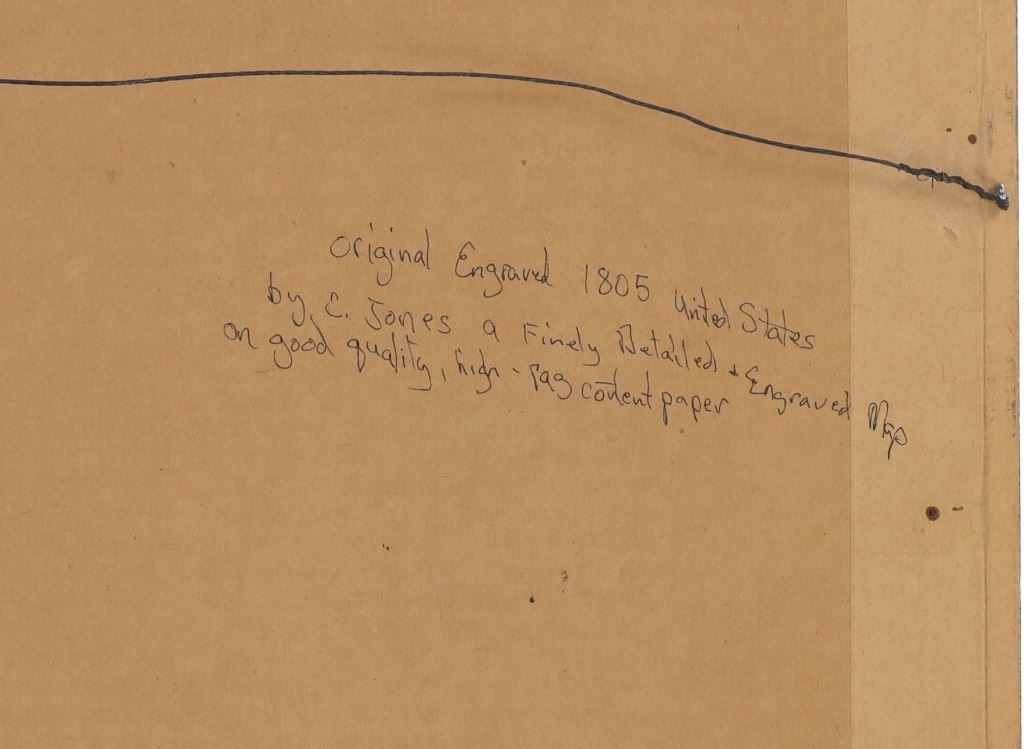 Original Engraved 1805 United States
by E. Jones a Finely Detailed + Engraved Map
on good quality, high-rag content paper